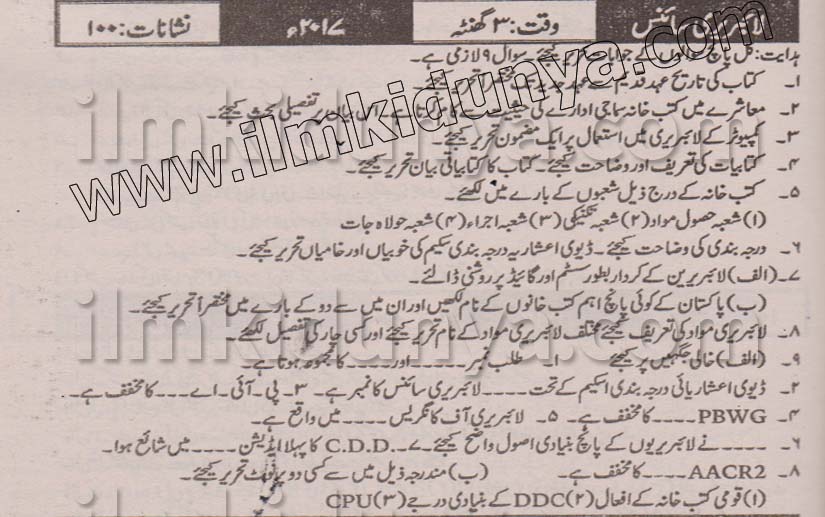 لائبریری سائنس وقت: ۳ گھنٹہ ۲۰۱۷ء نشانات: ۱۰۰
ہدایت: کل پانچ سوالوں کے جوابات تحریر کیجئے۔ سوال ۹ لازمی ہے۔
۱۔ کتاب کی تاریخ عہد قدیم سے عہد جدید تک تحریر کیجئے۔
۲۔ معاشرے میں کتب خانہ سماجی ادارے کی حیثیت سے کام کرتا ہے۔ اس بیان پر تفصیلی بحث کیجئے۔
۳۔ کمپیوٹر کے لائبریری میں استعمال پر ایک مضمون تحریر کیجئے۔
۴۔ کتابیات کی تعریف اور وضاحت کیجئے۔ کتاب کا کتابیاتی بیان تحریر کیجئے۔
۵۔ کتب خانہ کے درج ذیل شعبوں کے بارے میں لکھئے۔
(۱) شعبہ حصول مواد (۲) شعبہ تکنیکی (۳) شعبہ اجراء (۴) شعبہ حولاہ جات
۶۔ درجہ بندی کی وضاحت کیجئے۔ ڈیوی اعشاریہ درجہ بندی سکیم کی خوبیاں اور خامیاں تحریر کیجئے۔
۷۔ (الف) لائبریرین کے کردار بطور سسٹم اور گائیڈ پر روشنی ڈالئے۔
(ب) پاکستان کے کوئی پانچ اہم کتب خانوں کے نام لکھیں اور ان میں سے دو کے بارے میں مختصراً تحریر کیجئے۔
۸۔ لائبریری مواد کی تعریف کیجئے مختلف لائبریری مواد کے نام تحریر کیجئے اور کسی چار کی تفصیل لکھئے۔
۹۔ (الف) خالی جگہیں پر کیجئے ۱۔ طلب نمبر۔۔۔۔۔اور۔۔۔۔کا مجموعہ ہوتا ہے۔
۲۔ ڈیوی اعشاریائی درجہ بندی اسکیم کے تحت۔۔۔۔لائبریری سائنس کا نمبر ہے۔ ۳۔ پی۔آئی۔اے۔۔۔۔کا مخفف ہے۔
۴۔ PBWG۔۔۔۔کا مخفف ہے۔ ۵۔ لائبریری آف کانگریس۔۔۔۔میں واقع ہے۔
۶۔ ۔۔۔۔نے لائبریریوں کے پانچ بنیادی اصول واضح کیجئے۔ ۷۔ C.D.D کا پہلا ایڈیشن۔۔۔۔میں شائع ہوا۔
۸۔ AACR2۔۔۔۔کا مخفف ہے۔ (ب) مندرجہ ذیل میں سے کسی دو پر نوٹ تحریر کیجئے۔
(۱) قومی کتب خانہ کے افعال (۲) DDC کے بنیادی درجے (۳) CPU
www.ilmkidunya.com
ilmkidunya.com
ilmkidunya.com